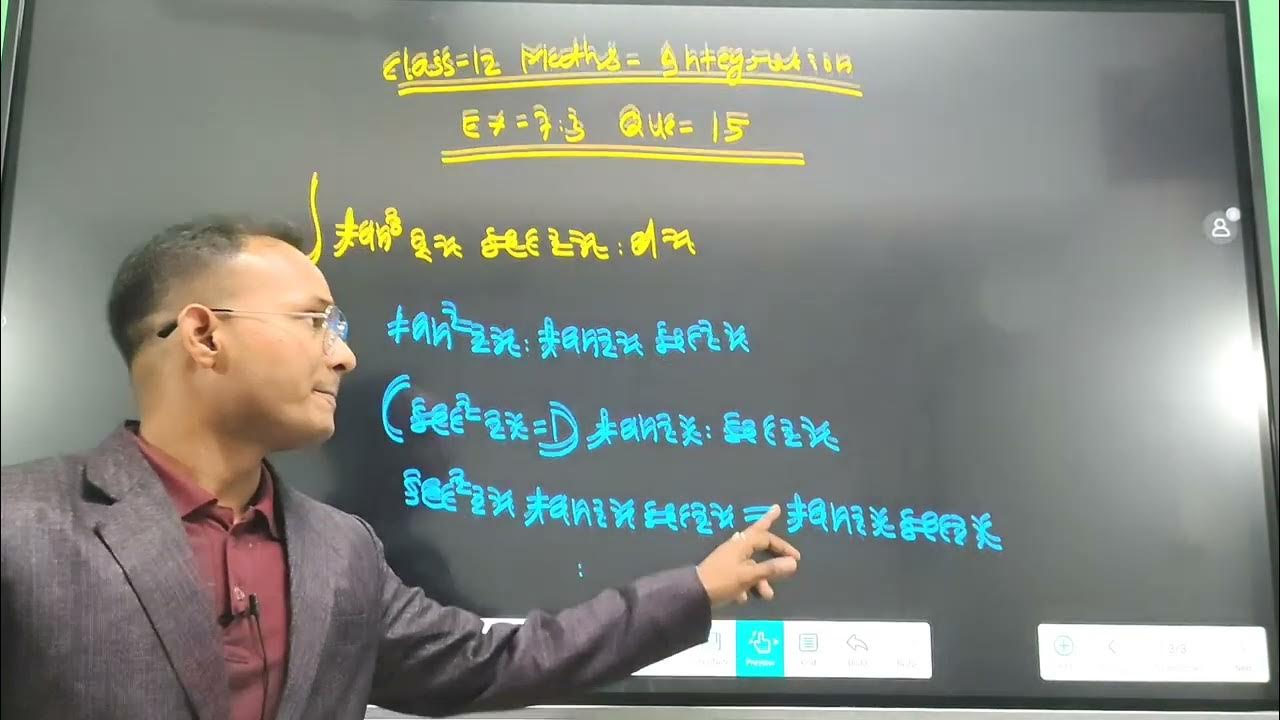 Class=12 Maths= Integration
Ex=7.3 Que= 15
∫ tan³ 2x sec 2x . dx
tan² 2x . tan2x sec2x
(sec² 2x - 1) tan2x . sec 2x
sec² 2x tan2x sec2x - tan2x sec2x
:
Preview
3/3